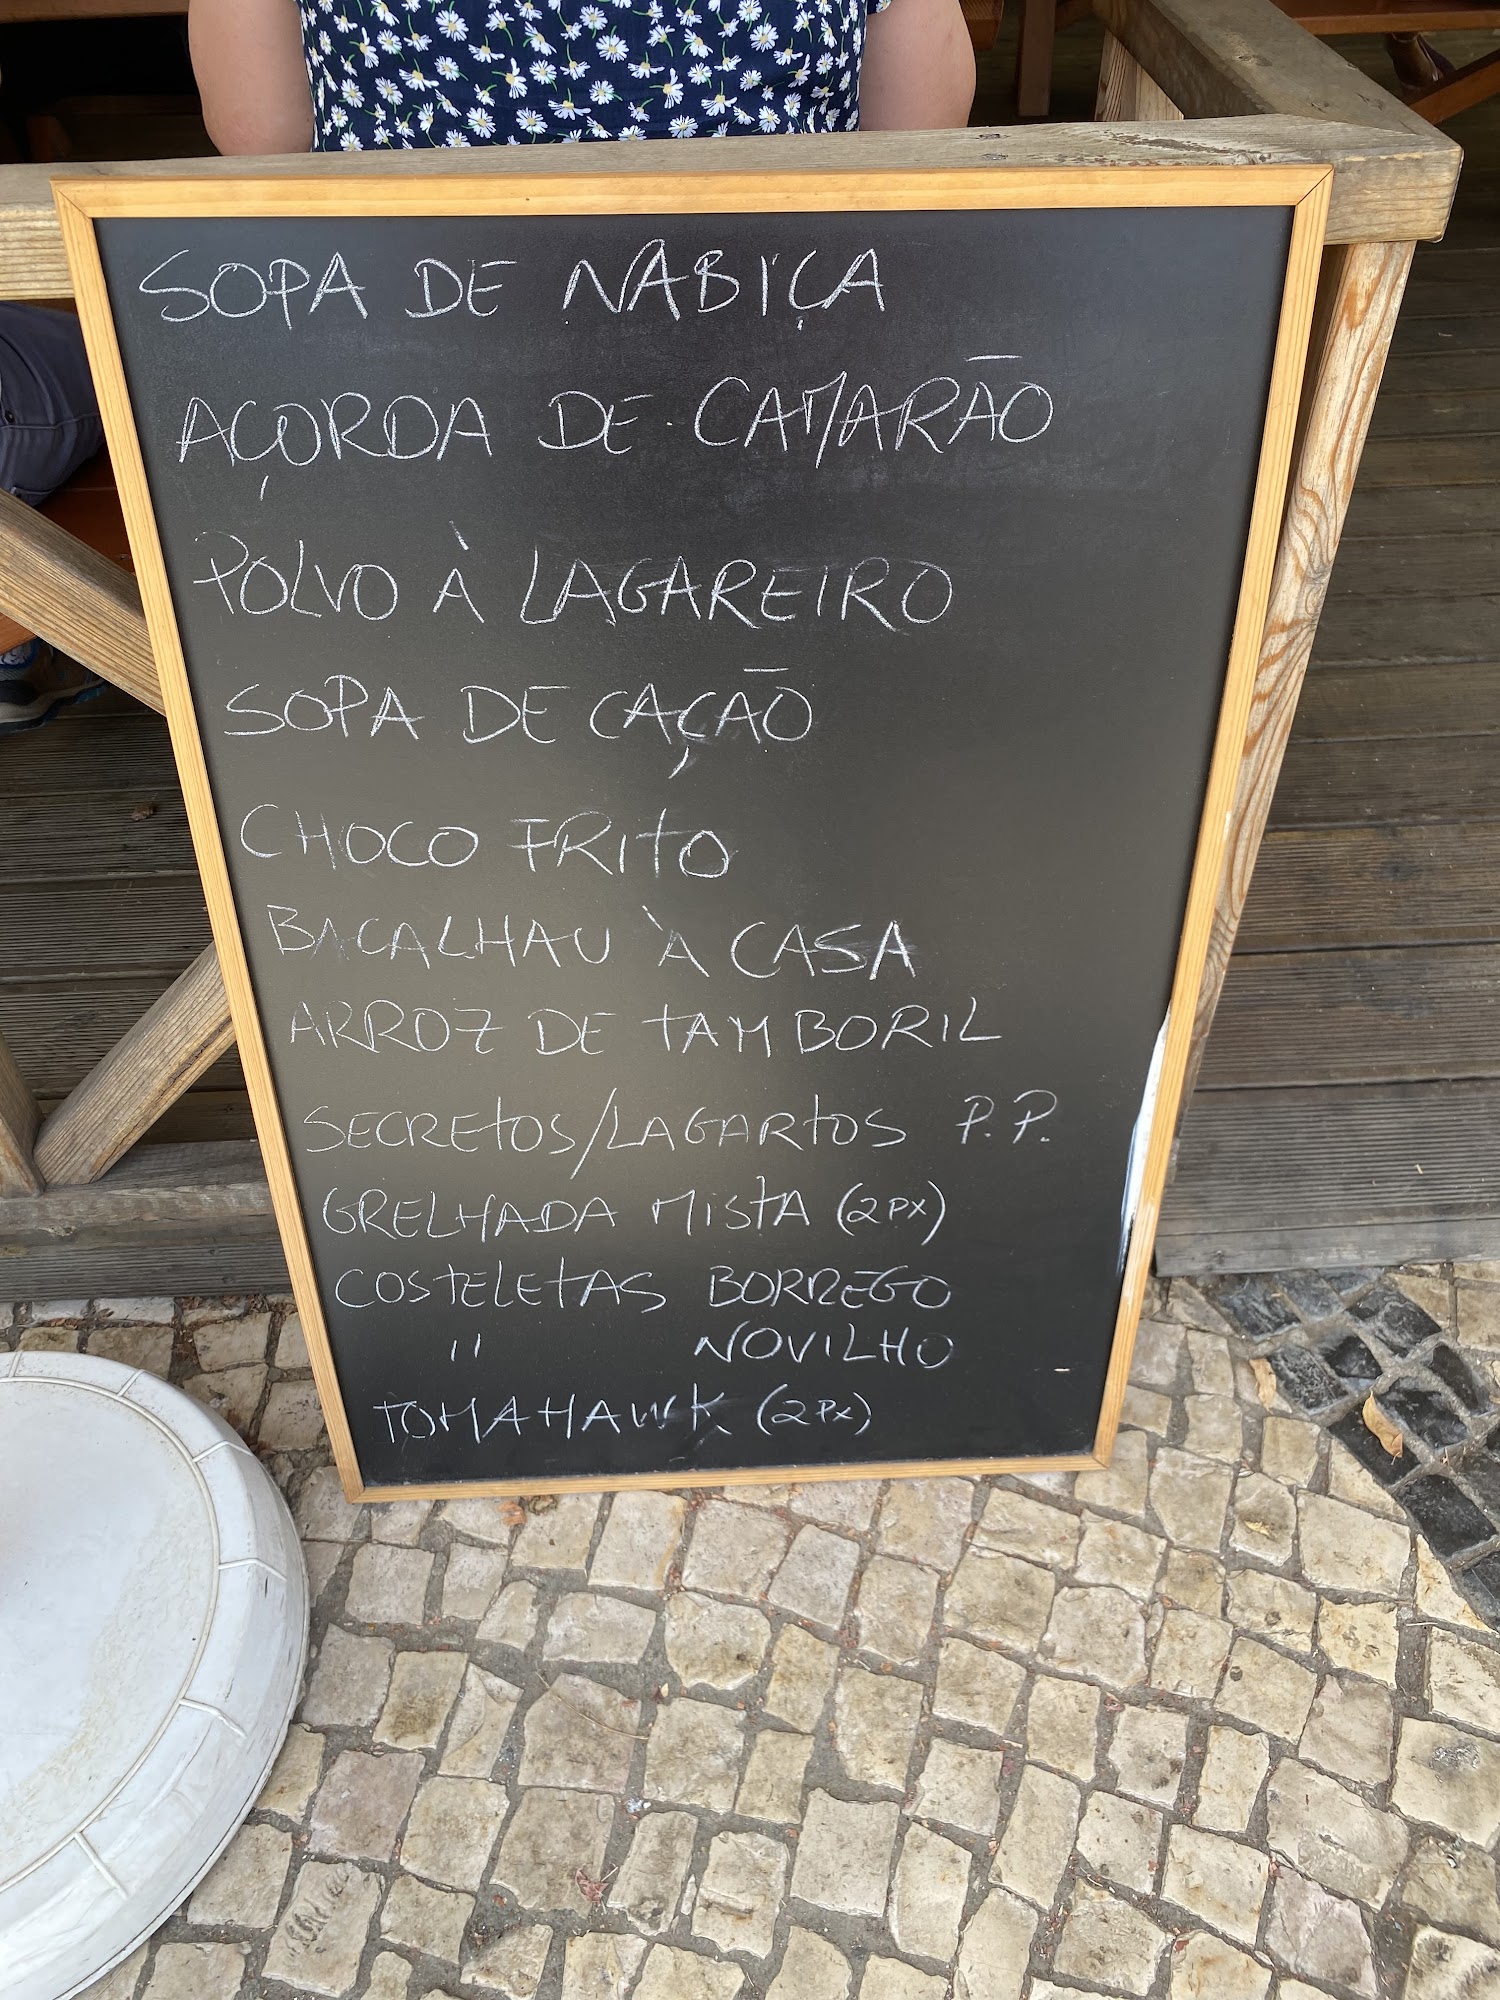 SOPA DE NABIÇA
AÇORDA DE CAMARÃO
POLVO À LAGAREIRO
SOPA DE CAÇÃO
CHOCO FRITO
BACALHAU À CASA
ARROZ DE TAMBORIL
SECRETOS/LAGARTOS P.P.
GRELHADA MISTA (2PX)
COSTELETAS BORREGO
" NOVILHO
TOMAHAWK (2PX)